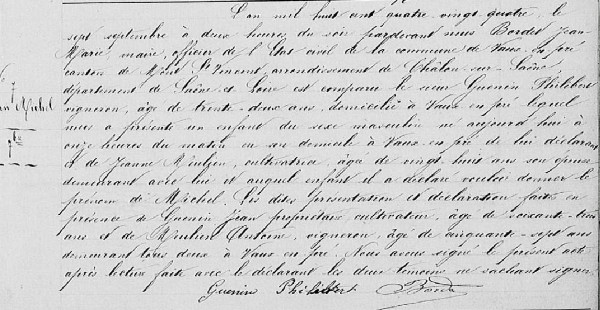 L'an mil huit cent quatre-vingt-quatre, le
sept septembre à deux heures du soir pardevant nous Bordet Jean
Marie, maire, officier de l'état civil de la commune de Vaux-en-pré
canton de Mont St Vincent, arrondissement de Châlon-sur-Saône,
département de Saône et Loire est comparu le sieur Guenin Philibert
vigneron, âgé de trente-deux ans, domicilié à Vaux en pré lequel
nous a présenté un enfant du sexe masculin né aujourd'hui à
onze heures du matin en son domicile à Vaux-en-pré de lui déclarant
et de Jeanne Meulien, cultivatrice, âgée de vingt huit ans son épouse
demeurant avec lui et auquel enfant il a déclaré vouloir donner le
prénom de Michel. Les dites présentation et déclaration faites en
présence de Guenin Jean propriétaire cultivateur, âgé de soixante-trois
ans et de Meulien Antoine, vigneron, âgé de cinquante-sept ans
demeurant tous deux à Vaux en pré. Nous avons signé le présent acte
après lecture faite avec le déclarant les deux témoins ne sachant signer
Guenin Philibert Bordet
Michel